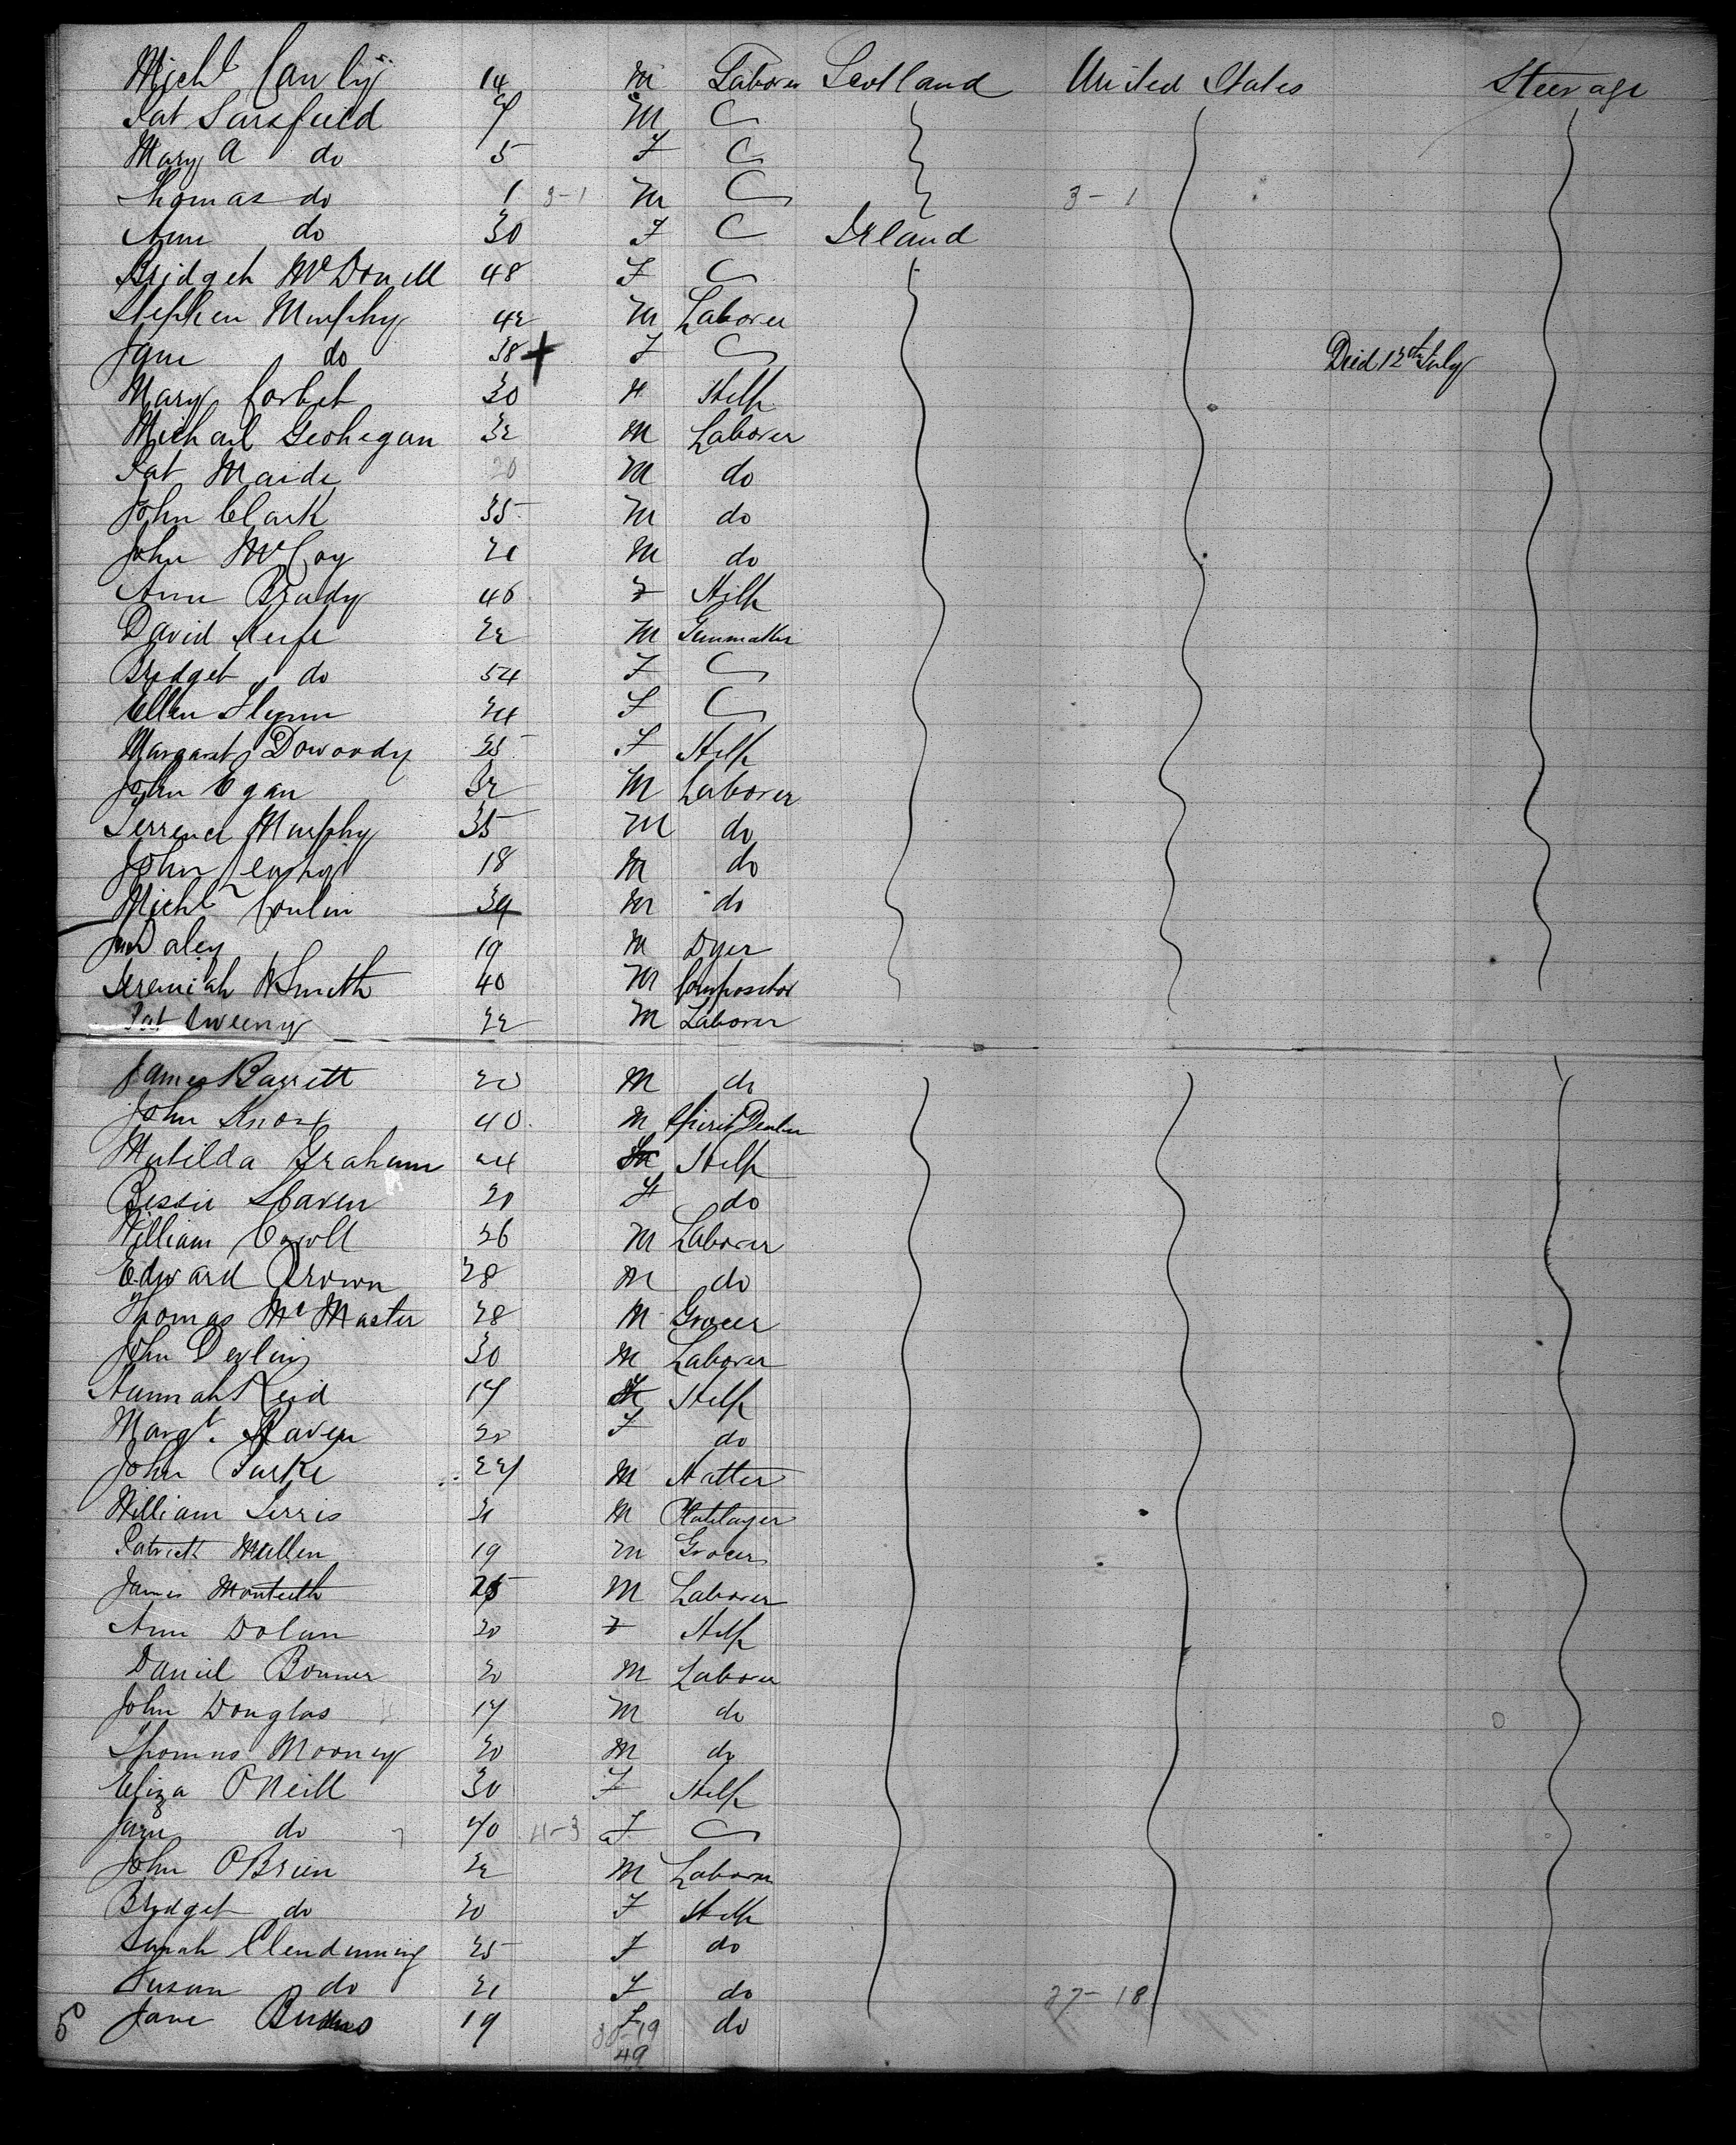 Michl Cawly 14 M Laborer Scotland United States Steerage
Pat Sarsfield 7 M C
Mary A do 5 F C
Thomas do 1 3-1 M C 3-1
Ann do 30 F C Ireland
Bridget McDonell 48 F C
Stephen Murphy 42 M Laborer
Jane do 38 + F C Died 12th July
Mary Corbet 30 F Help
Michael Geohegan 32 M Laborer
Pat Maide 20 M do
John Clark 35 M do
John McCoy 21 M do
Ann Brady 46 F Help
David Keife 22 M Gunmaker
Bridget do 54 F C
Ellen Flynn 24 F C
Margaret Dowoody 35 F Help
John Egan 32 M Laborer
Terrence Murphy 35 M do
John 18 M do
Michl Conlin 39 M do
Jno Daley 19 M Dyer
Jeremiah Smith 40 M Compositor
Pat Sweeny 22 M Laborer
James Barrett 20 M do
John Knox 40 M Spirit Dealer
Matilda Graham 24 F Help
Bessie Slaven 20 F do
William Caroll 26 M Laborer
Edward Brown 28 M do
Thomas McMaster 28 M Grocer
John Devlin 30 M Laborer
Hannah Reid 17 F Help
Margt. Slaven 20 F do
John Burke 27 M Hatter
William Ferris 21 M Platelayer
Patrick Mullen 19 M Grocer
James Monteith 25 M Laborer
Ann Dolan 20 F Help
Daniel Bonner 20 M Laborer
John Douglas 17 M do
Thomas Mooney 20 M do
Eliza O'Neill 30 F Help
Jane do 40 11-3 F C
John O'Brien 22 M Laborer
Bridget do 20 F Help
Sarah Clendinning 25 F do
Susan do 21 F do 27-18
50 Jane Burns 19 F do
30-19
49